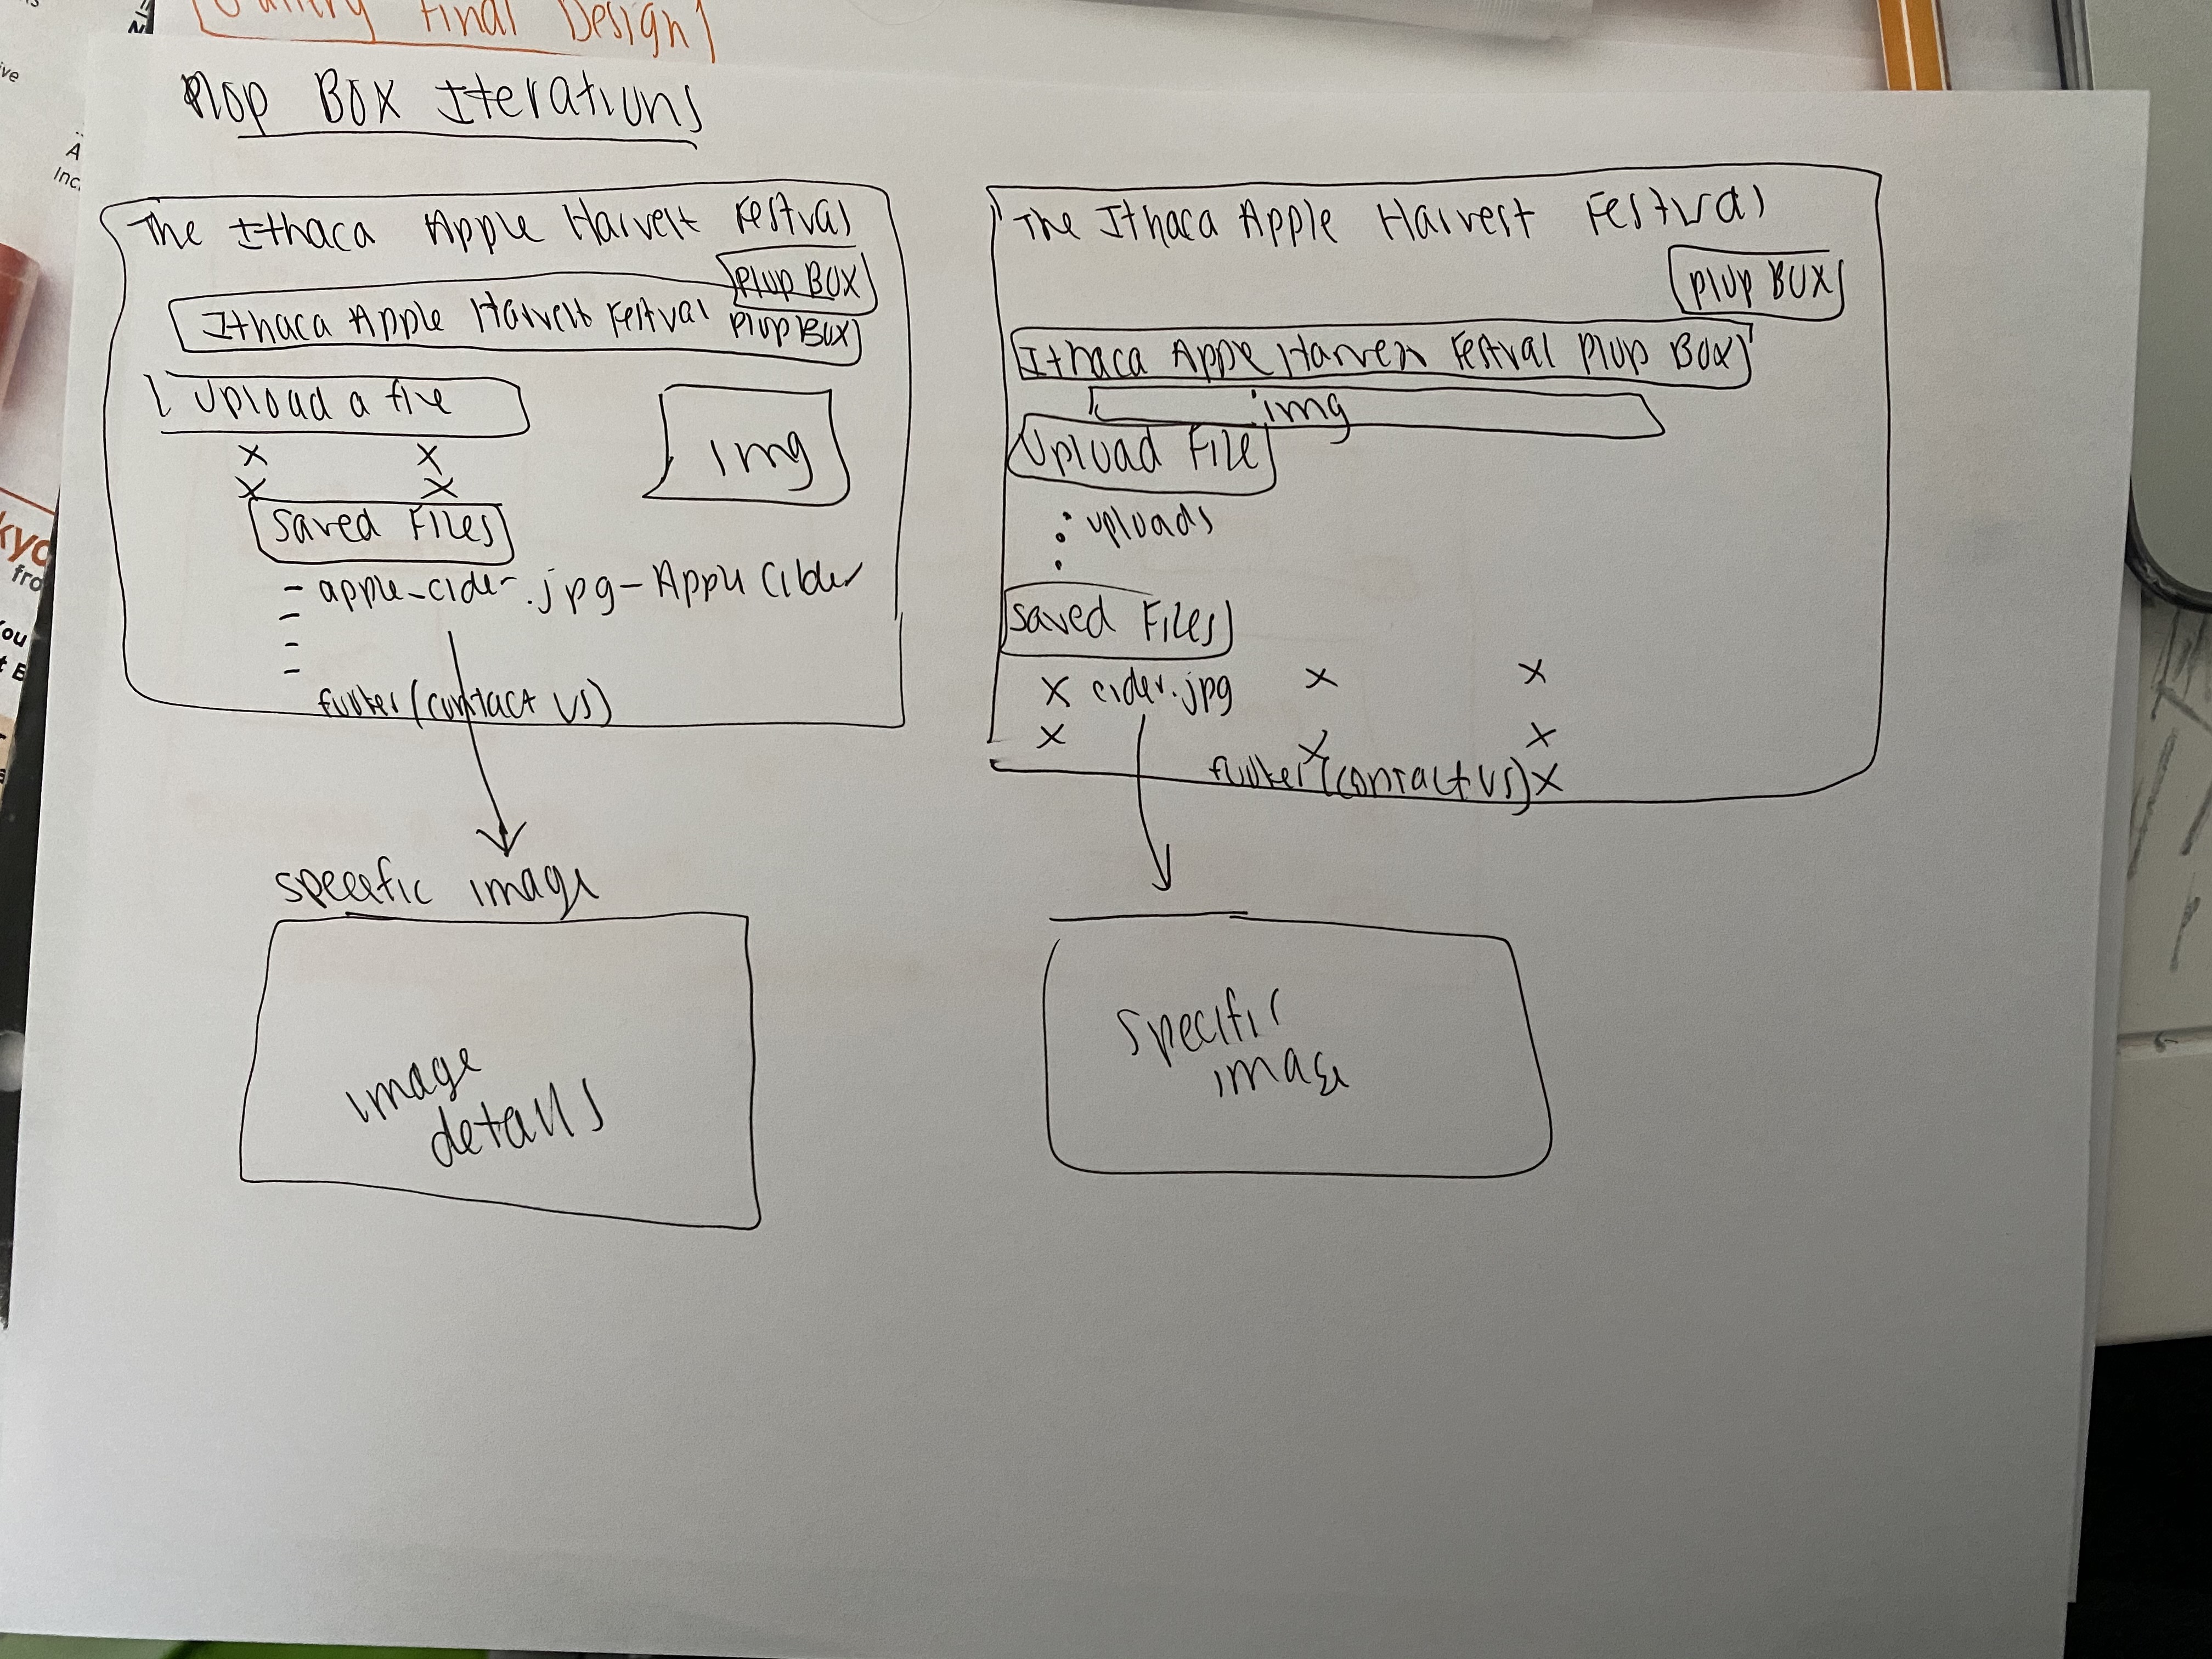 Gallery Final Design
Plop Box Iterations
The Ithaca Apple Harvest Festval
Plop Box
Ithaca Apple Harvest Festval Plop Box
Upload a file
img
x x
x x
Saved Files
- apple-cider.jpg - Apple Cider
-
-
-
footer (contact us)
specific image
image
details
The Ithaca Apple Harvest Festval
Plop Box
Ithaca Apple Harvest Festval Plop Box
img
Upload File
: uploads
Saved Files
x cider.jpg x x
x x x
footer (contact us) x
specific
image
ive
A
Inc.
kyo
fro
You
t B